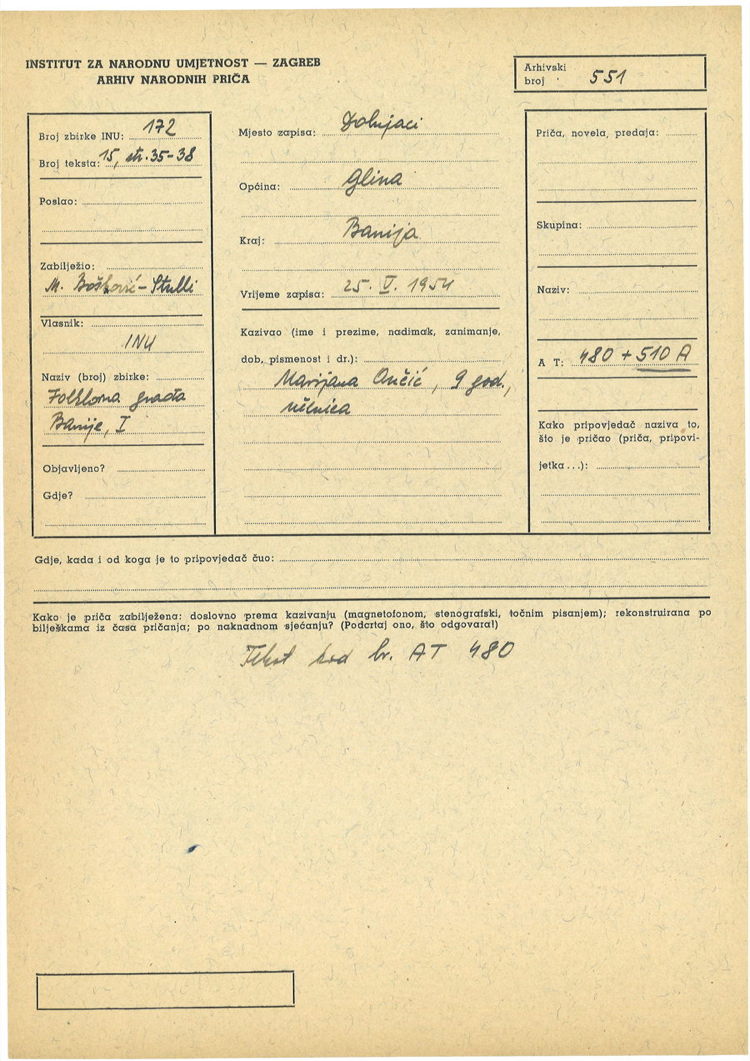 INSTITUT ZA NARODNU UMJETNOST — ZAGREB
ARHIV NARODNIH PRIČA
Arhivski
broj 551
Broj zbirke INU: 172
Broj teksta: 15, str. 35-38
Poslao:
Zabilježio:
M. Bošković-Stulli
Vlasnik:
INU
Naziv (broj) zbirke:
Folklorna građa
Banije, I
Objavljeno?
Gdje?
Mjesto zapisa: Dolnjaci
Općina: Glina
Kraj: Banija
Vrijeme zapisa: 25. V. 1954
Kazivao (ime i prezime, nadimak, zanimanje,
dob, pismenost i dr.):
Marijana Ončić, 9 god.,
učenica
Priča, novela, predaja:
Skupina:
Naziv:
A T: 480 + 510 A
Kako pripovjedač naziva to,
što je pričao (priča, pripovi-
jetka...):
Gdje, kada i od koga je to pripovjedač čuo:
Kako je priča zabilježena: doslovno prema kazivanju (magnetofonom, stenografski, točnim pisanjem); rekonstruirana po
bilješkama iz časa pričanja; po naknadnom sjećanju? (Podcrtaj ono, što odgovara!)
Tekst kod br. AT 480